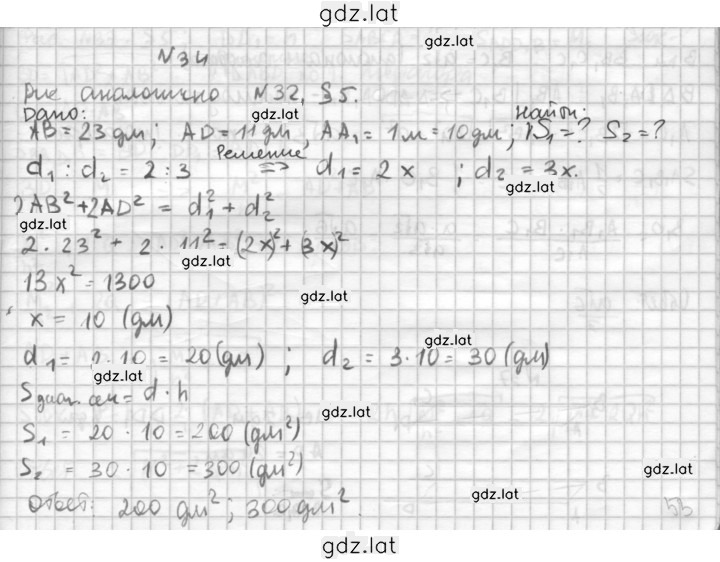 gdz.lat
gdz.lat
N34
Рис аналогично N32, §5.
gdz.lat
Дано: Найти:
AB = 23 дм; AD = 11 дм, AA₁ = 1м = 10 дм; S₁ = ? S₂ = ?
Решение
d₁ : d₂ = 2 : 3 => d₁ = 2x ; d₂ = 3x.
gdz.lat
2AB² + 2AD² = d₁² + d₂²
gdz.lat
2 · 23² + 2 · 11² = (2x)² + (3x)²
gdz.lat
13x² = 1300
gdz.lat
x = 10 (дм)
gdz.lat
d₁ = 2 · 10 = 20 (дм) ; d₂ = 3 · 10 = 30 (дм)
gdz.lat
S диаг. сеч = d · h
gdz.lat
S₁ = 20 · 10 = 200 (дм²)
S₂ = 30 · 10 = 300 (дм²)
gdz.lat
gdz.lat
Ответ: 200 дм²; 300 дм².
53
gdz.lat